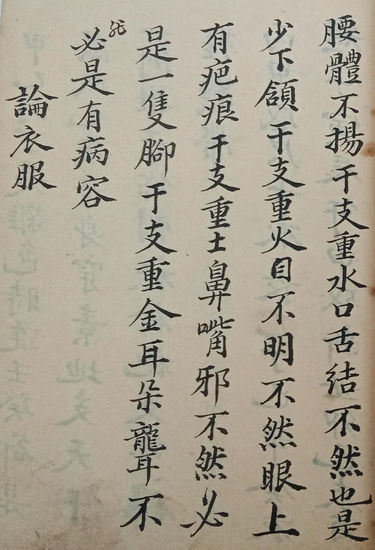 腰體不揚干支重水口舌結不然也是
少下頷干支重火目不明不然眼上
有疤痕干支重土鼻嘴邪不然必
是一隻腳干支重金耳朵聾不
必是有病容
論衣服